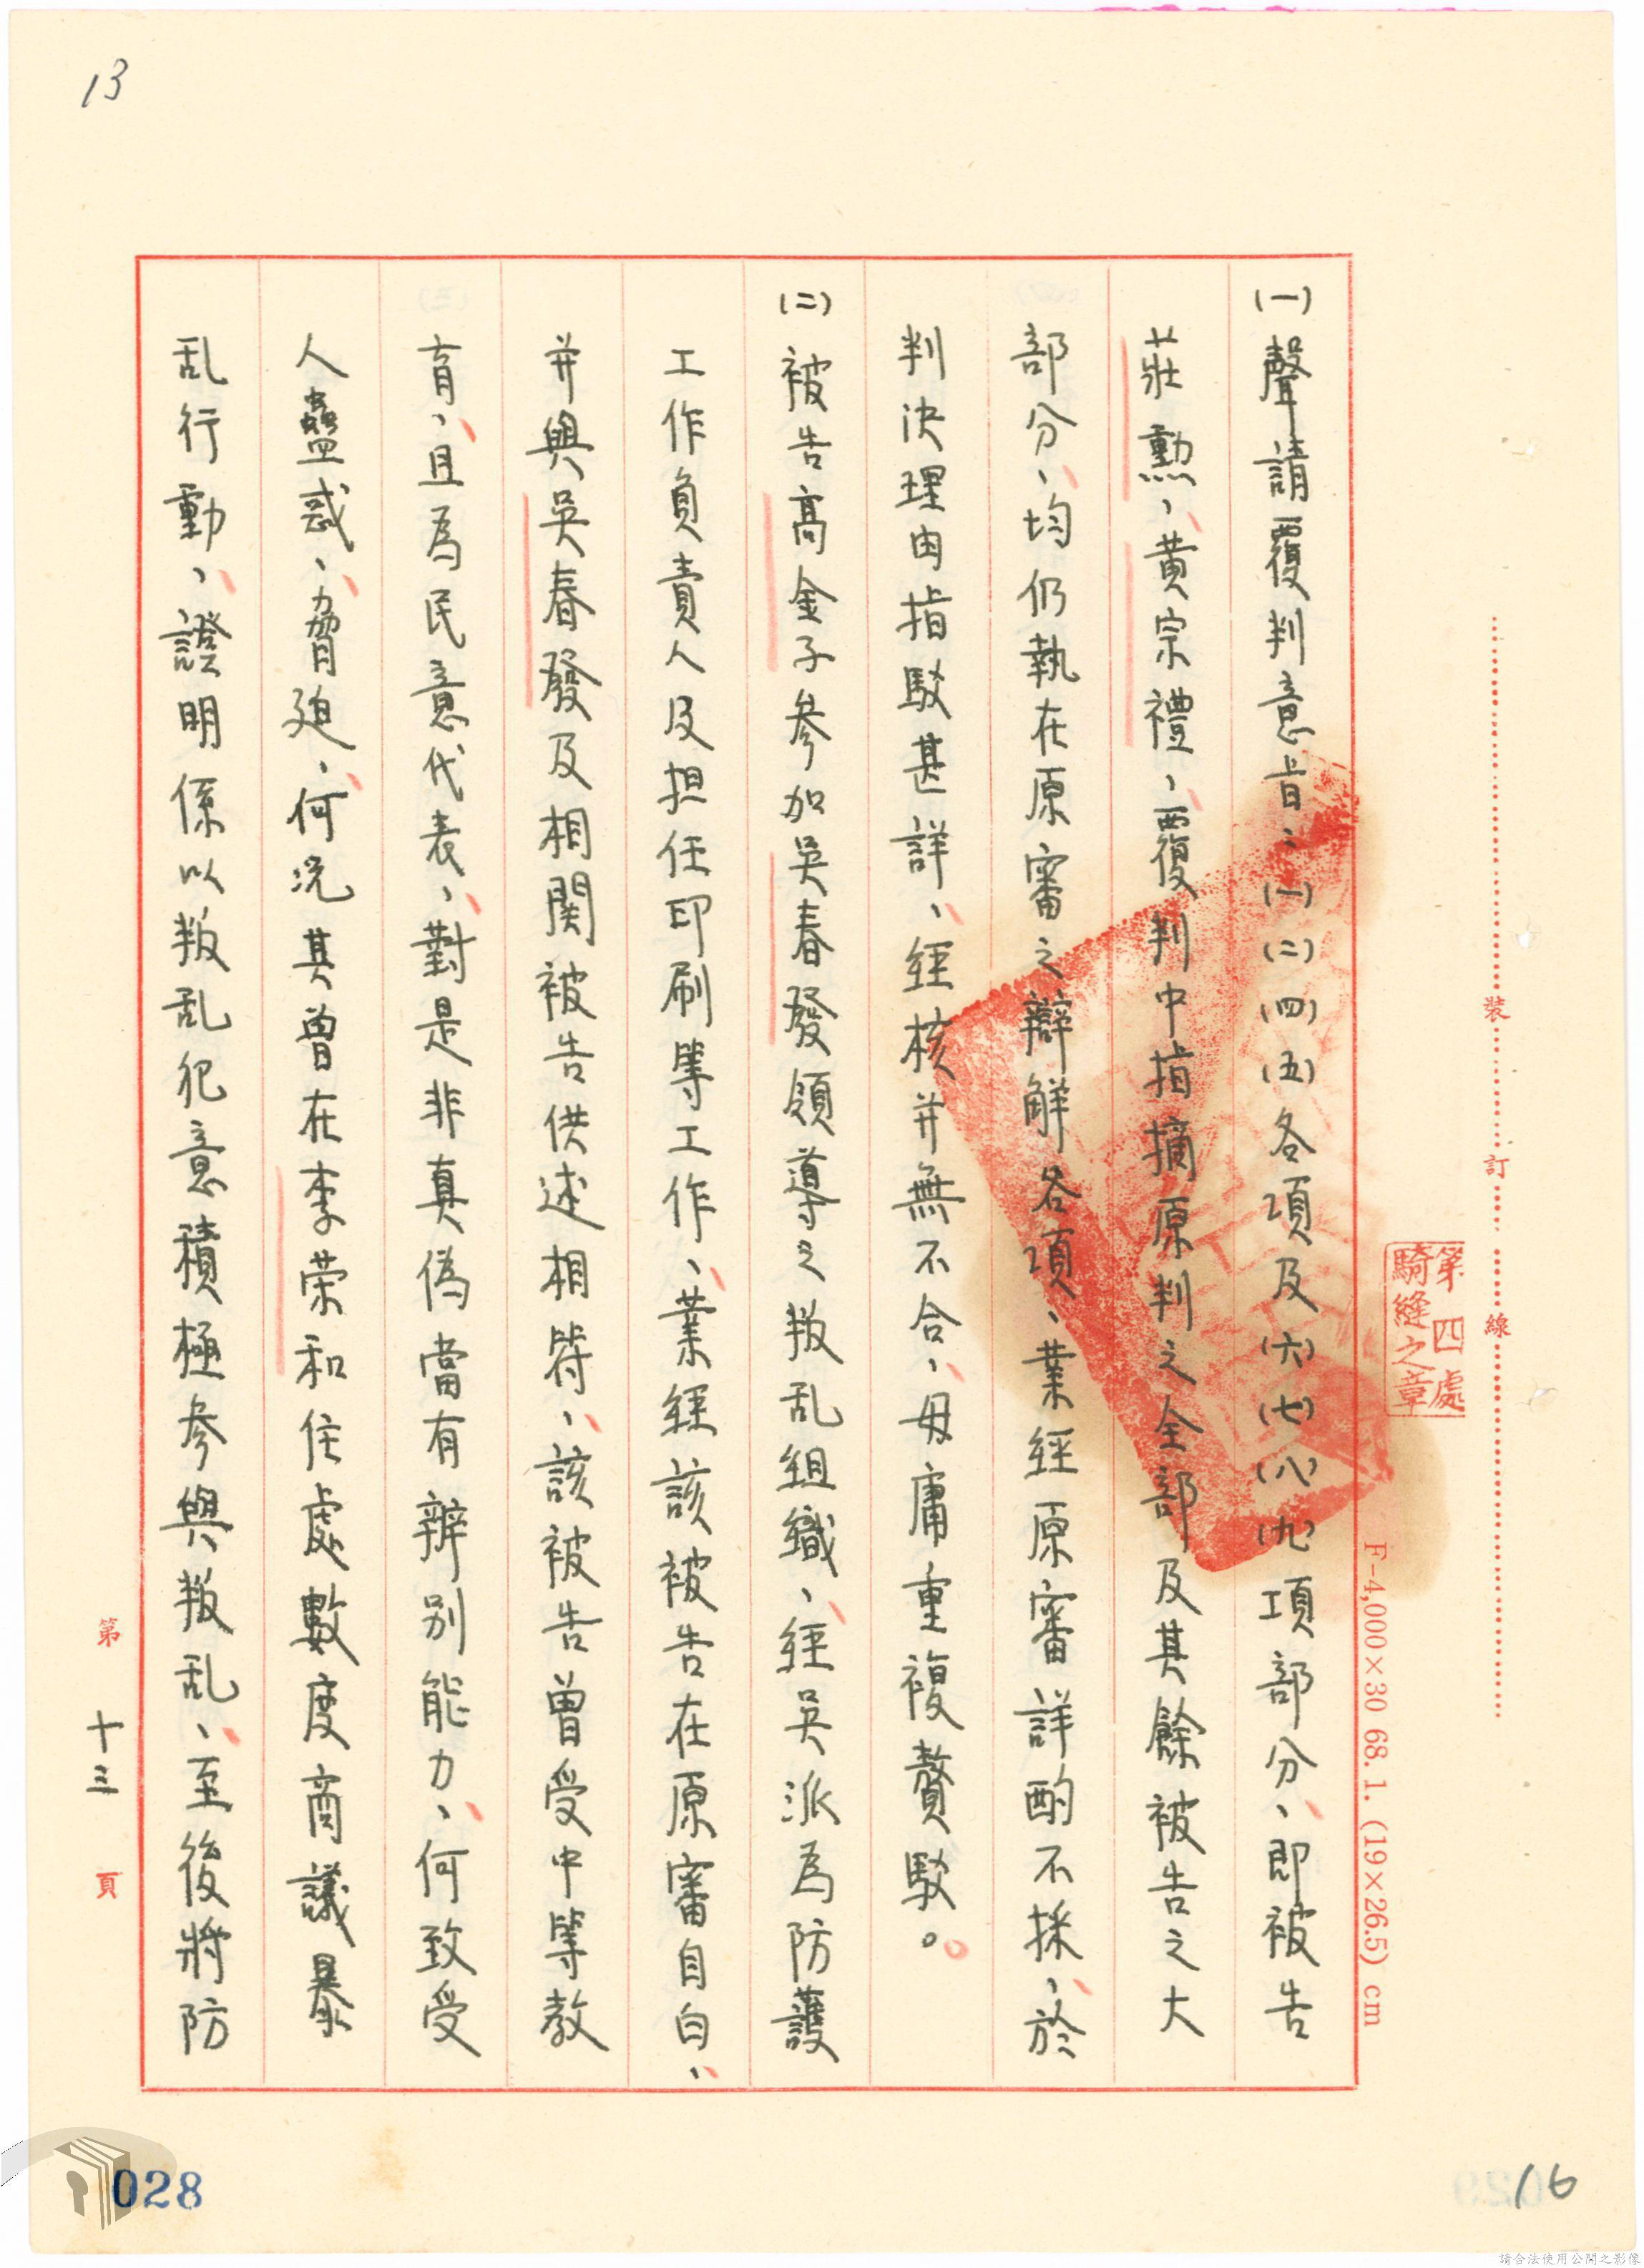 13
(一)聲請覆判意旨:(一)(二)(四)(五)各項及(六)(七)(八)(九)項部分、即被告
莊勲、黃宗禮、覆判中指摘原判之全部及其餘被告之大
部分、均仍執在原審之辯解各項、業經原審詳酌不採、於
判決理由指駁甚詳、經核并無不合、毋庸重複贅駁。
(二)被告高金子參加吳春發領導之叛乱組織、經吳派為防護
工作負責人及担任印刷等工作、業經該被告在原審自白、
并與吳春發及相関被告供述相符、該被告曾受中等教
育、且為民意代表、對是非真偽當有辨別能力、何致受
人蠱惑、脅廹、何況其曾在李荣和住處數度商議暴
乱行動、證明係以叛乱犯意積極參與叛乱、至後將防
第 十三 頁
裝 訂 線
第四處
騎縫之章
F-4,000×30 68.1. (19×26.5) cm
028
16
請合法使用公開之影像